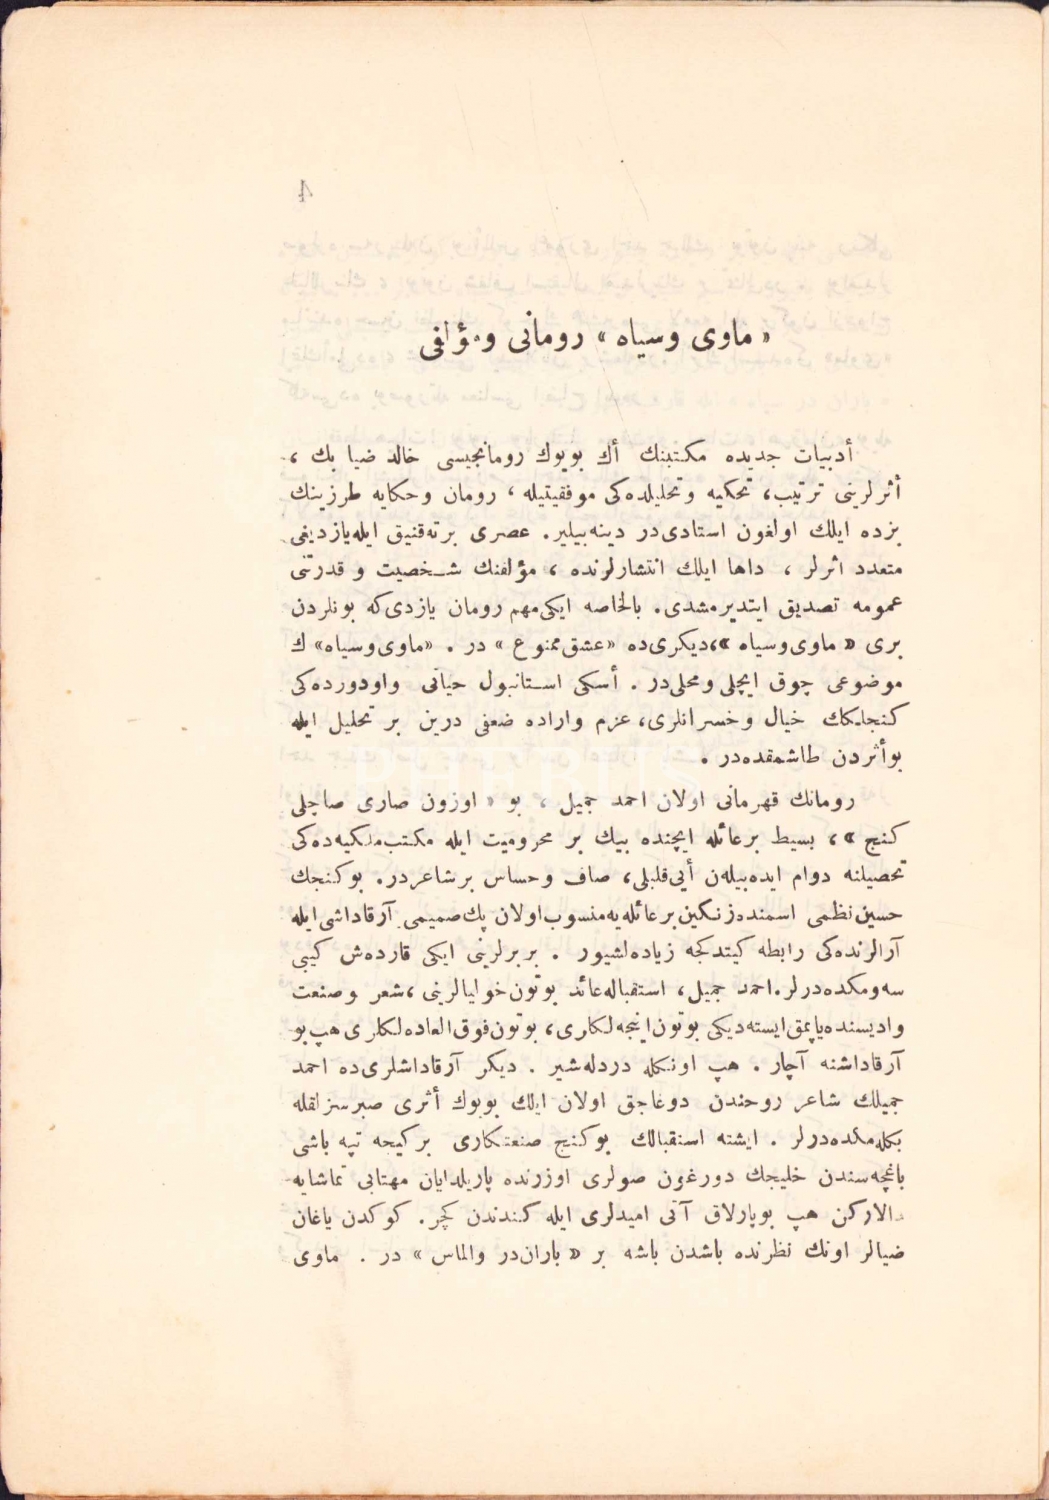 « ماوى وسياه » رومانى ومؤلفى
أدبيات جديده مكتبنك أڭ بويوك رومانجيسى خالد ضيا بك ،
أثرلرينى ترتيب، تحكيه وتحليلده‌كى موفقيتيله ، رومان وحكايه طرزينك
بزده ايلك اولغون استادى‌در دينه‌بيلير. عصرى برته‌قنيق ايله‌يازديغى
متعدد اثرلر ، داها ايلك انتشارلرنده ، مؤلفنك شخصيت و قدرتنى
عمومه تصديق ايتديرمشدى. بالخاصه ايكى‌مهم رومان يازدى‌كه بونلردن
برى « ماوى‌وسياه »،ديكرى‌ده «عشق‌ممنوع » در . «ماوى‌وسياه» ك
موضوعى چوق ايچلى ومحلى‌در . أسكى استانبول حياتى واودورده‌كى
كنجلكك خيال وخسرانلرى، عزم واراده ضعفى درين بر تحليل ايله
بوأثردن طاشمقده‌در .
PHEBUS
رومانك قهرمانى اولان احمد جميل ، بو « اوزون صارى صاچلى
كنج »، بسيط برعائله ايچنده بيك بر محروميت ايله مكتب‌ملكيه‌ده‌كى
تحصيلنه دوام ايده‌بيله‌ن أيى‌قلبلى، صاف وحساس برشاعردر. بوكنجك
حسين‌نظمى اسمنده‌زنكين‌برعائله‌يه‌منسوب‌اولان پك‌صميمى آرقاداشى‌ايله
آرالرنده‌كى رابطه كيتدكجه زياده‌لشيور . بربرلرينى ايكى قارده‌ش كيبى
سه‌ومكده‌درلر.احمد جميل، استقباله‌عائد بوتون‌خوليالرينى ،شعر وصنعت
واديسنده‌ياپمق‌ايسته‌ديكى بوتون‌اينجه‌لكلرى، بوتون‌فوق‌العاده‌لكلرى هپ‌بو
آرقاداشنه آچار . هپ اونكله دردله‌شير . ديكر آرقاداشلرى‌ده احمد
جميلك شاعر روحندن دوغاجق اولان ايلك بويوك أثرى صبرسزلقله
بكله‌مكده‌درلر . ايشته استقبالك بوكنج صنعتكارى بركيجه تپه باشى
باغچه‌سندن خليجك دورغون صولرى اوزرنده پاريلدايان مهتابى تماشايه
دالاركن هپ بوپارلاق آتى اميدلرى ايله كندندن كچر. كوكدن ياغان
ضيالر اونك نظرنده باشدن باشه بر « باران‌در والماس » در . ماوى